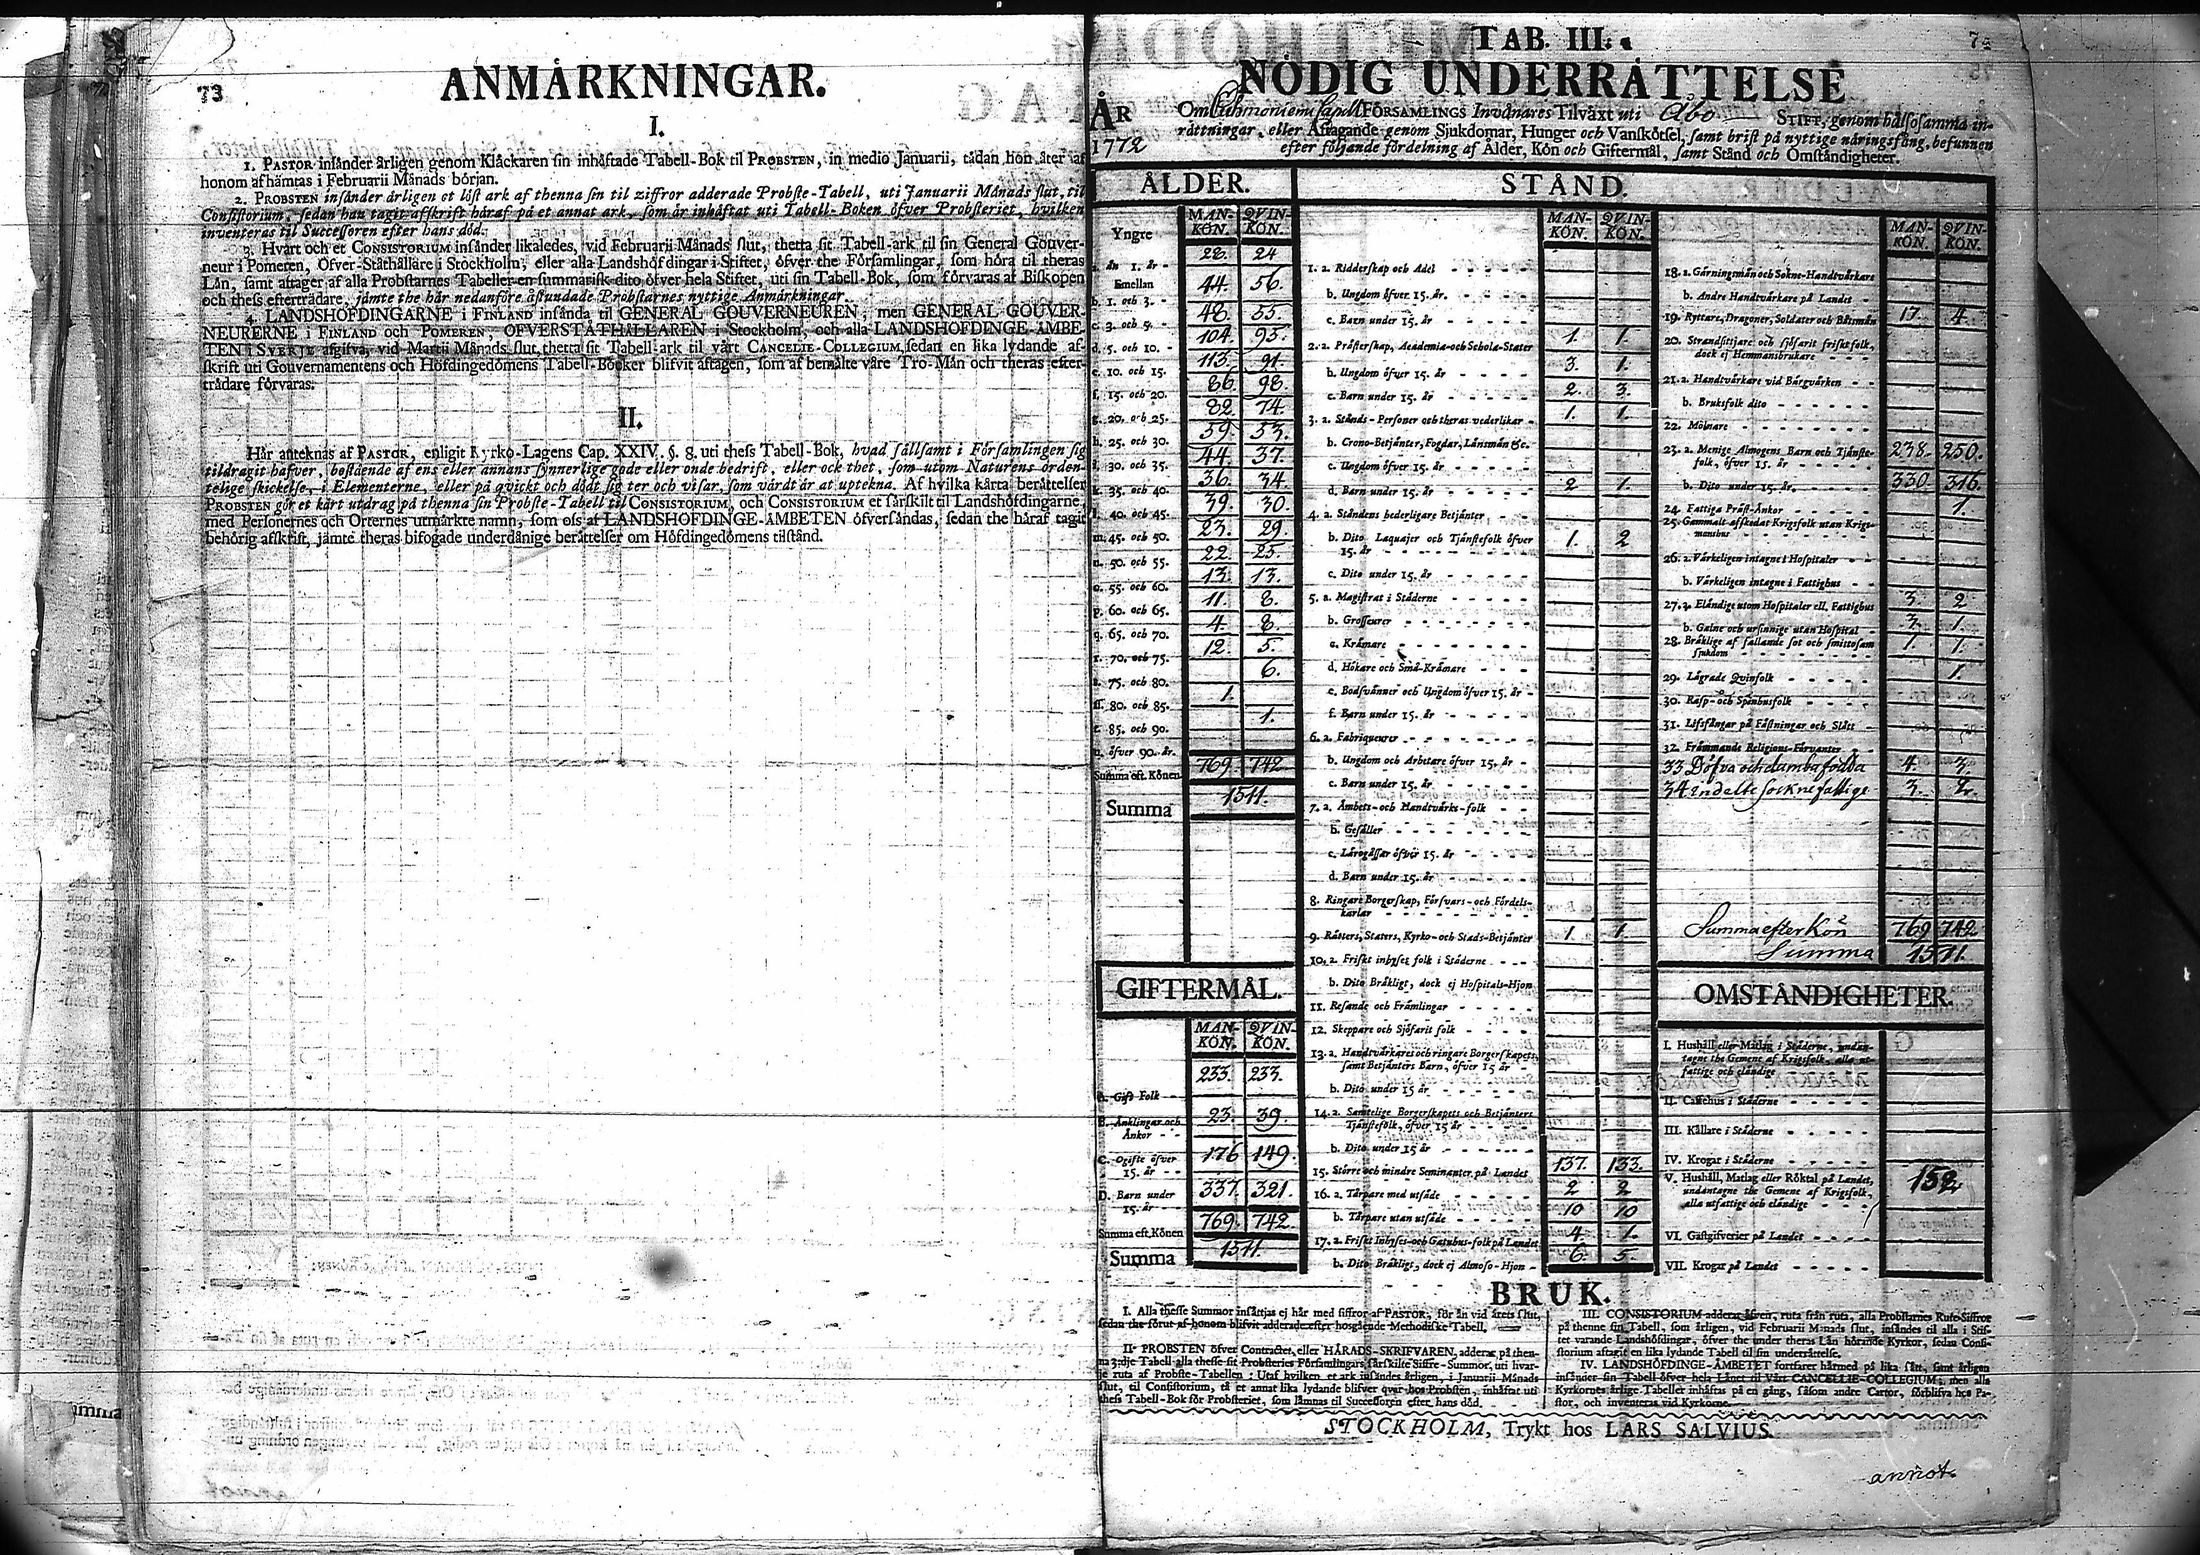 73
ANMÅRKNINGAR.
I.
1. PASTOR insånder årligen genom Klåckaren sin inhåftade Tabell-Bok til PROBSTEN, in medio Januarii, tådan hon åter af
honom afhåmtas i Februarii Månads början.
2. PROBSTEN insånder årligen et löst ark af thenna sin til ziffror adderade Probste-Tabell, uti Januarii Månads slut, til
Consistorium, sedan han tagit afskrift håraf på et annat ark, som år inhåftat uti Tabell-Boken öfver Probsteriet, hvilken
inventeras til Successoren efter hans död.
3. Hvart och et CONSISTORIUM insånder likaledes, vid Februarii Månads slut, thetta sit Tabell-ark til sin General Gouver-
neur i Pomeren, Öfver-Ståthållare i Stockholm, eller alla Landshöfdingar i Stiftet, öfver the Församlingar, som höra til theras
Lån, samt aftager af alla Probstarnes Tabeller en summarisk dito öfver hela Stiftet, uti sin Tabell-Bok, som förvaras af Biskopen
och thess eftertrådare, jåmte the hår nedanföre åstundade Probstarnes nyttige Anmårkningar.
4. LANDSHÖFDINGARNE i FINLAND insånda til GENERAL GOUVERNEUREN, men GENERAL GOUVER-
NEURERNE i FINLAND och POMEREN, ÖFVERSTÅTHÅLLAREN i Stockholm, och alla LANDSHÖFDINGE-ÅMBE-
TEN i SVERJE afgifva, vid Martii Månads slut, thetta sit Tabell-ark til vårt CANCELIE-COLLEGIUM, sedan en lika lydande af-
skrift uti Gouvernamentens och Höfdingedömens Tabell-Böcker blifvit aftagen, som af bemålte våre Tro-Mån och theras efter-
trådare förvaras.
II.
Hår anteknas af PASTOR, enligit Kyrko-Lagens Cap. XXIV. §. 8. uti thess Tabell-Bok, hvad sållsamt i Församlingen sig
tildragit hafver, bestående af ens eller annans synnerlige gode eller onde bedrift, eller ock thet, som utom Naturens orden-
telige skickelse, i Elementerne, eller på qvickt och dödt sig ter och visar, som vårdt år at uptekna. Af hvilka kårta beråttelser
PROBSTEN gör et kårt utdrag på thenna sin Probste-Tabell til CONSISTORIUM, och CONSISTORIUM et sårskilt til Landshöfdingarne,
med Personernes och Orternes utmårkte namn, som oss af LANDSHÖFDINGE-ÅMBETEN öfversåndas, sedan the håraf tagit
behörig afskrift, jåmte theras bifogade underdånige beråttelser om Höfdingedömens tilstånd.
TAB. III.
NÖDIG UNDERRÅTTELSE
ÅR 1772
Om Capell FÖRSAMLINGS Invånares Tilvåxt uti Åbo STIFT, genom hålsosamma in-
råttningar, eller Aftagande genom Sjukdomar, Hunger och Vanskötsel, samt brist på nyttige nåringsfång, befunnen
efter följande fördelning af Ålder, Kön och Giftermål, samt Stånd och Omståndigheter.
ÅLDER.
MAN-KÖN. QVIN-KÖN.
Yngre
a. ån 1. år - 28. 24
Emellan
b. 1. och 3. - 44. 56.
c. 3. och 5. - 48. 55.
d. 5. och 10. - 104. 95.
e. 10. och 15. 113. 91.
f. 15. och 20. 86. 98.
g. 20. och 25. 82. 74.
h. 25. och 30. 59. 53.
i. 30. och 35. 44. 37.
k. 35. och 40. 36. 34
l. 40. och 45. 39. 30.
m. 45. och 50. 23. 29.
n. 50. och 55. 22. 25.
o. 55. och 60. 13. 13.
p. 60. och 65. 11. 8.
q. 65. och 70. 4. 8.
r. 70. och 75. 12. 5.
s. 75. och 80. 6.
ss. 80. och 85. 1.
t. 85. och 90. 1.
u. öfver 90. år.
Summa eft. Könen 769. 742
Summa 1511.
GIFTERMÅL.
MAN-KÖN. QVIN-KÖN.
A. Gift Folk - - 233. 233.
B. Änklingar och Änkor - - 23. 39.
C. Ogifte öfver 15. år - - 176 149.
D. Barn under 15. år - - 337. 321.
Summa eft. Könen 769. 742
Summa 1511.
STÅND.
MAN-KÖN. QVIN-KÖN.
1. a. Ridderskap och Adel
b. Ungdom öfver 15. år.
c. Barn under 15. år
2. a. Pråsterskap, Academiæ- och Scholæ-Stater 1. 1.
b. Ungdom öfver 15. år 3. 1.
c. Barn under 15. år 2. 3.
3. a. Stånds-Personer och theras vederlikar 1. 1.
b. Crono-Betjånter, Fogdar, Lånsmån &c.
c. Ungdom öfver 15. år
d. Barn under 15. år 2 1.
4. a. Ståndens hederligare Betjånter
b. Dito Laquajer och Tjånstefolk öfver 15. år 1. 2
c. Dito under 15. år
5. a. Magistrat i Ståderne
b. Grosseurer
c. Kråmare
d. Hökare och Små-Kråmare
e. Bodsvånner och Ungdom öfver 15. år
f. Barn under 15. år
6. a. Fabriqueurer
b. Ungdom och Arbetare öfver 15. år
c. Barn under 15. år
7. a. Åmbets- och Handtvårks-folk
b. Gesåller
c. Lårogåssar öfver 15. år
d. Barn under 15. år
8. Ringare Borgerskap, Försvars- och Fördels-karlar
9. Råtters, Staters, Kyrko- och Stads-Betjånter 1. 1.
10. a. Friskt inhyset folk i Ståderne
b. Dito Bråkligt, dock ej Hospitals-Hjon
11. Resande och Fråmlingar
12. Skeppare och Sjöfarit folk
13. a. Handtvårkares och ringare Borgerskapets, samt Betjånters Barn, öfver 15 år
b. Dito under 15 år
14. a. Samtelige Borgerskapets och Betjånters Tjånstefolk, öfver 15 år
b. Dito under 15 år
15. Större och mindre Seminanter på Landet 137. 133.
16. a. Tårpare med utsåde 2 2
b. Tårpare utan utsåde 10 10
17. a. Friskt Inhyses- och Gatuhus-folk på Landet 4 1.
b. Dito Bråkligt, dock ej Almoso-Hjon 6. 5.
MAN-KÖN. QVIN-KÖN.
18. a. Gårningsmån och Sokne-Handtvårkare
b. Andre Handtvårkare på Landet
19. Ryttare, Dragoner, Soldater och Båtsmån 17. 4.
20. Strandsittjare och sjöfarit friskt folk, dock ej Hemmansbrukare
21. a. Handtvårkare vid Bårgvårken
b. Bruksfolk dito
22. Mölnare
23. a. Menige Almogens Barn och Tjånste-folk, öfver 15. år 238. 250.
b. Dito under 15. år. 330. 316.
24. Fattiga Pråst-Änkor 1.
25. Gammalt afskedat Krigsfolk utan Krigs-manshus
26. a. Vårkeligen intagne i Hospitaler
b. Vårkeligen intagne i Fattighus
27. a. Elåndige utom Hospitaler ell. Fattighus 3. 2
b. Galne och ursinnige utan Hospital 3. 1.
28. Bråklige af fallande sot och smittosam sjukdom 1. 1.
29. Lågrade Qvinfolk 1.
30. Rasp- och Spinhusfolk
31. Lifsfångar på Fåstningar och Slått
32. Fråmmande Religions-Förvanter
33 Döfva och dumba födda 4. 3.
34 Indelte sockne fattige 3. 2.
Summa efter Kön 769 742
Summa 1511.
OMSTÅNDIGHETER.
I. Hushåll eller Matlag i Ståderne, undan-
tagne the Gemene af Krigsfolk, alla ut-
fattige och elåndige
II. Caffehus i Ståderne
III. Kållare i Ståderne
IV. Krogar i Ståderne
V. Hushåll, Matlag eller Röktal på Landet,
undantagne the Gemene af Krigsfolk,
alla utfattige och elåndige 152
VI. Gåstgifverier på Landet
VII. Krogar på Landet
BRUK.
I. Alla thesse Summor insåttjas ej hår med siffror af PASTOR, för ån vid årets slut,
sedan the förut af honom blifvit adderade efter hosgående Methodiske Tabell.
II. PROBSTEN öfver Contractet, eller HÅRADS-SKRIFVAREN, adderar på then-
na 3:dje Tabell alla thesse sit Probsteries Församlingars sårskilte Siffre-Summor, uti hvar-
je ruta af Probste-Tabellen: Utaf hvilken et ark insåndes årligen, i Januarii Månads
slut, til Consistorium, tå et annat lika lydande blifver qvar hos Probsten, inhåftat uti
thess Tabell-Bok för Probsteriet, som låmnas til Successoren efter hans död.
III. CONSISTORIUM adderar åfven, ruta från ruta, alla Probstarnes Rute-Siffror
på thenne sin Tabell, som årligen, vid Februarii Månads slut, insåndes til alla i Stif-
tet varande Landshöfdingar, öfver the under theras Lån hörande Kyrkor, sedan Consi-
storium aftagit en lika lydande Tabell til sin underråttelse.
IV. LANDSHÖFDINGE-ÅMBETET fortfarer hårmed på lika sått, samt årligen
insånder sin Tabell öfver hela Lånet til Vårt CANCELLIE-COLLEGIUM; men alla
Kyrkornes årlige Tabeller inhåftas på en gång, såsom andre Cartor, förblifva hos Pa-
stor, och inventeras vid Kyrkorne.
STOCKHOLM, Trykt hos LARS SALVIUS.
annot.